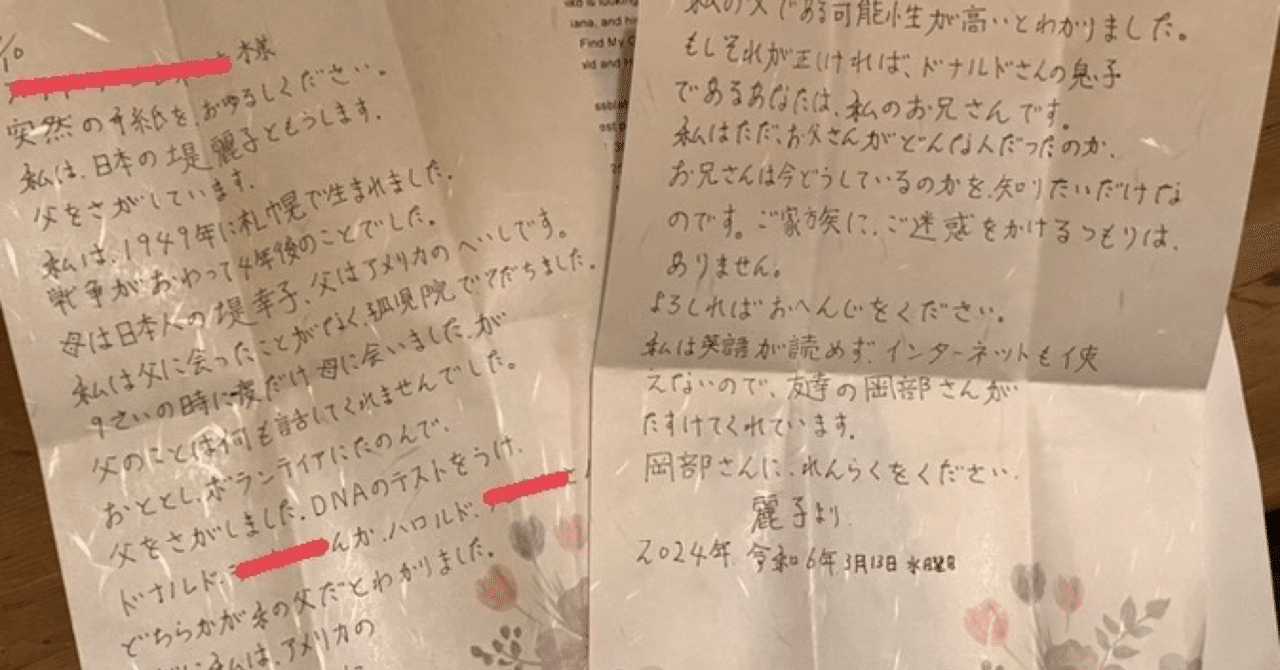 /10
様
突然の手紙を、おゆるしください。
私は、日本の堤 麗子ともうします。
父をさがしています。
私は、1949年に札幌で生まれました。
戦争がおわって4年後のことでした。
母は日本人の堤幸子、父はアメリカのへいしです。
私は父に会ったことがなく、孤児院でそだちました。
9さいの時に一度だけ母に会いました、が
父のことは何も話してくれませんでした。
おととし、ボランティアにたのんで、
父をさがしました。DNAのテストをうけ、
ドナルド、んか、ハロルド、
どちらかが私の父だとわかりました。
私は、アメリカの
is looking
iana, and
Find My
私の父である可能性が高いとわかりました。
もしそれが正ければ、ドナルドさんの息子
であるあなたは、私のお兄さんです。
私はただ、お父さんがどんな人だったのか、
お兄さんは今どうしているのかを、知りたいだけな
のです。ご家族に、ご迷惑をかけるつもりは、
ありません。
よろしればおへんじをください。
私は英語が読めず、インターネットも使
えないので、友達の岡部さんが
たすけてくれています。
岡部さんに、れんらくをください。
麗子より
2024年 令和6年3月13日 水曜日